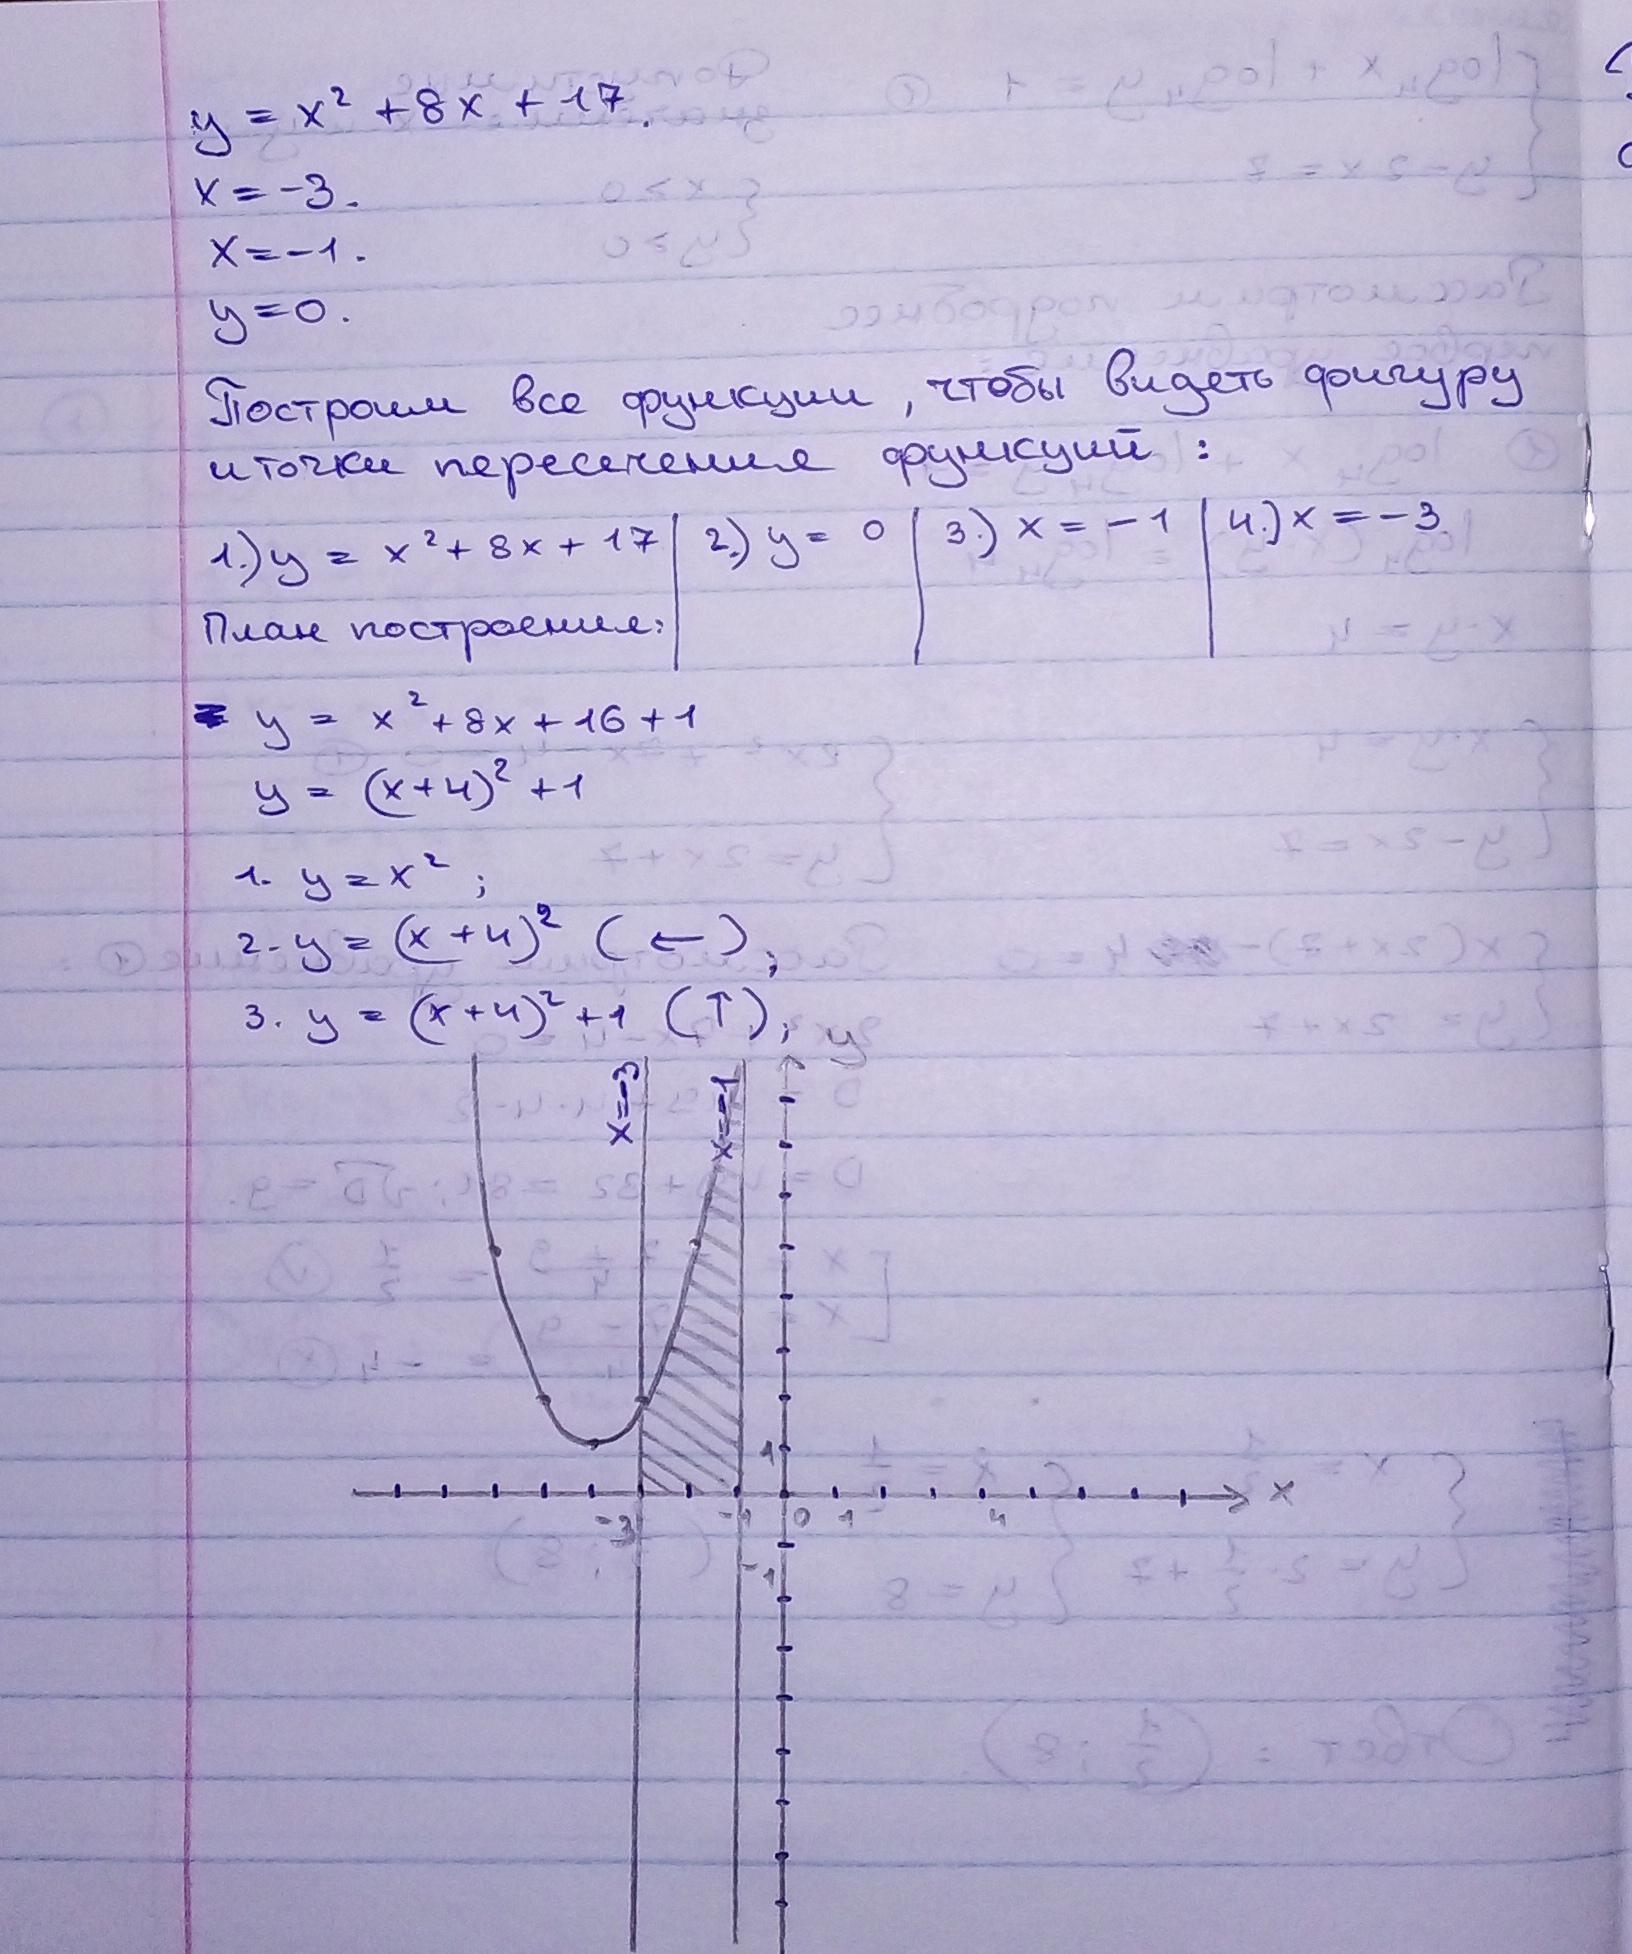 y = x² + 8x + 17.
x = -3.
x = -1.
y = 0.
Построим все функции, чтобы видеть фигуру
и точки пересечения функций:
1.) y = x² + 8x + 17 | 2.) y = 0 | 3.) x = -1 | 4.) x = -3
План построения:
y = x² + 8x + 16 + 1
y = (x+4)² + 1
1. y = x² ;
2. y = (x+4)² (←) ;
3. y = (x+4)² + 1 (↑) ;
y
x=-3
x=-1
1
x
-3 -1 0 1 4
-1